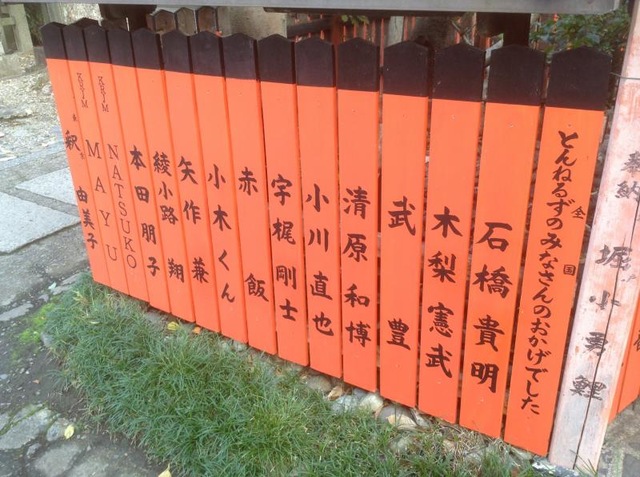 奉納 堀小勇鯉
全国
とんねるずのみなさんのおかげでした
石橋貴明
木梨憲武
武 豊
清原和博
小川直也
宇梶剛士
赤飯
小木くん
矢作 兼
綾小路 翔
本田朋子
KRYM NATSUKO
KRYM MAYU
釈 由美子